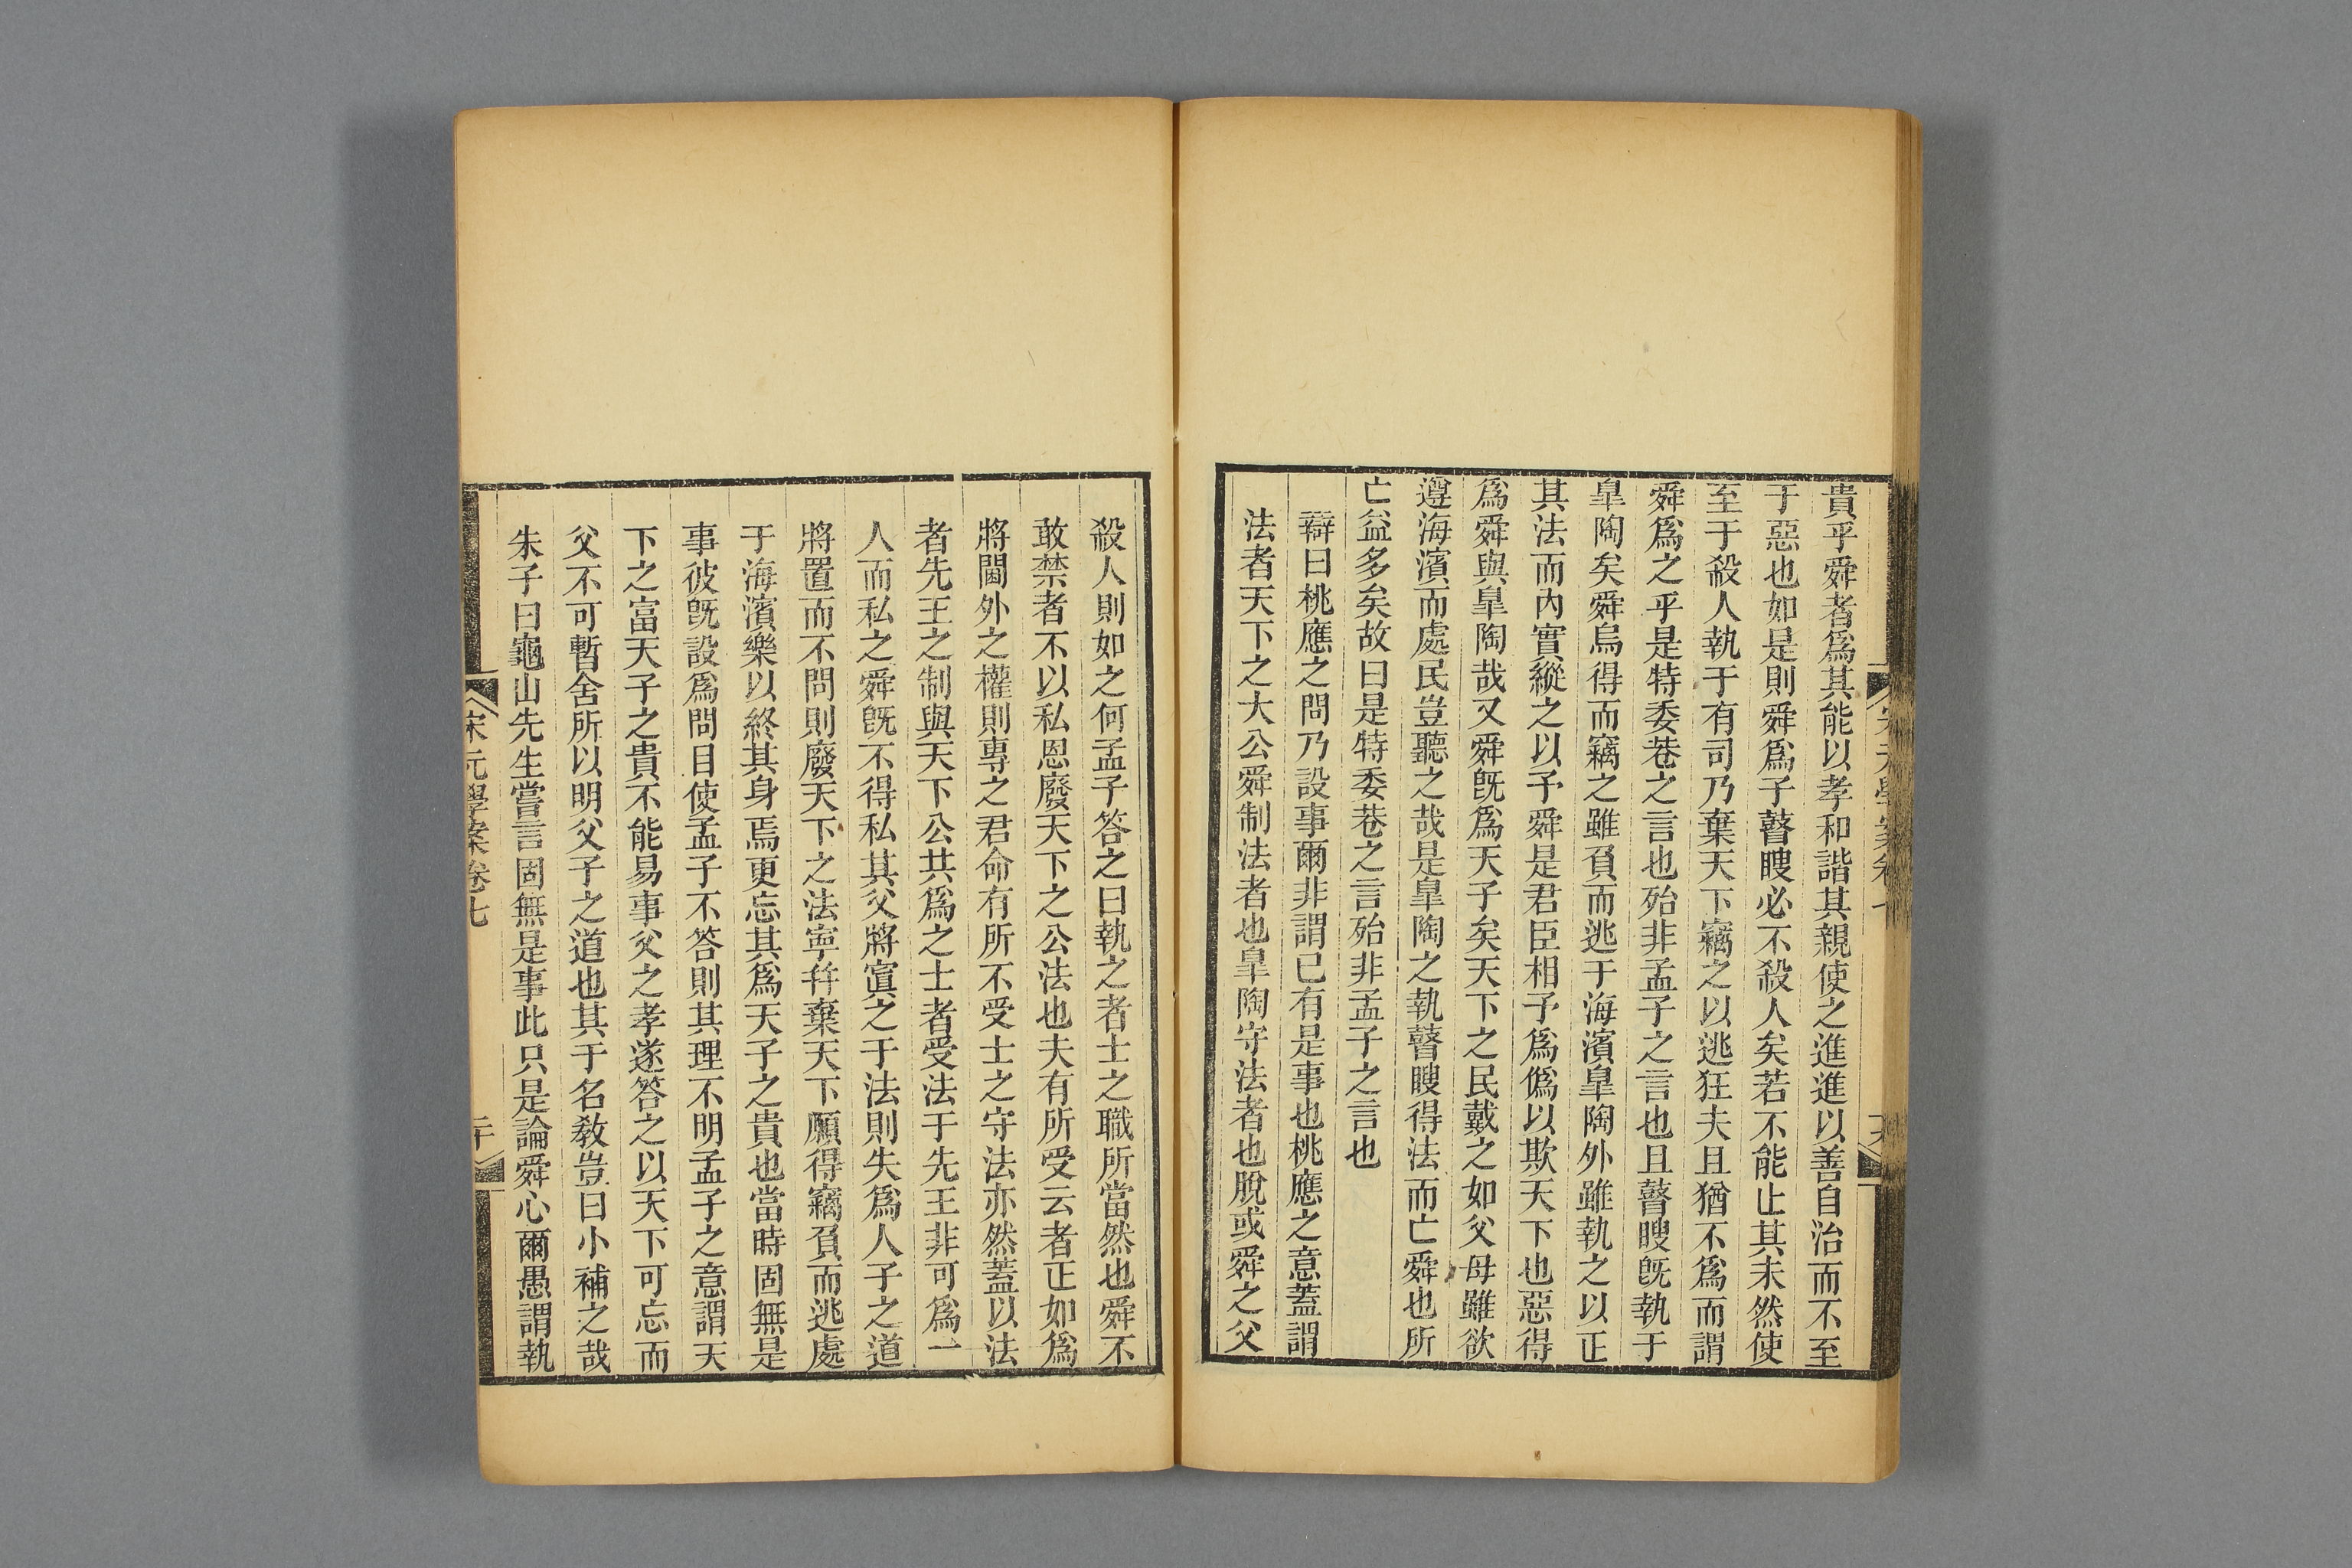 貴乎舜者爲其能以孝和諧其親使之進進以善自治而不至
于惡也如是則舜爲子瞽瞍必不殺人矣若不能止其未然使
至于殺人執于有司乃棄天下竊之以逃狂夫且猶不爲而謂
舜爲之乎是特委巷之言也殆非孟子之言也且瞽瞍旣執于
皐陶矣舜烏得而竊之雖負而逃于海濱皐陶外雖執之以正
其法而內實縱之以予舜是君臣相予爲僞以欺天下也惡得
爲舜與皐陶哉又舜旣爲天子矣天下之民戴之如父母雖欲
遵海濱而處民豈聽之哉是皐陶之執瞽瞍得法而亡舜也所
亡益多矣故曰是特委巷之言殆非孟子之言也
辯曰桃應之問乃設事爾非謂已有是事也桃應之意蓋謂
法者天下之大公舜制法者也皐陶守法者也脫或舜之父
殺人則如之何孟子答之曰執之者士之職所當然也舜不
敢禁者不以私恩廢天下之公法也夫有所受云者正如爲
將閫外之權則專之君命有所不受士之守法亦然蓋以法
者先王之制與天下公共爲之士者受法于先王非可爲一
人而私之舜旣不得私其父將寘之于法則失爲人子之道
將置而不問則廢天下之法寧幷棄天下願得竊負而逃處
于海濱樂以終其身焉更忘其爲天子之貴也當時固無是
事彼旣設爲問目使孟子不答則其理不明孟子之意謂天
下之富天子之貴不能易事父之孝遂答之以天下可忘而
父不可暫舍所以明父子之道也其于名敎豈曰小補之哉
朱子曰龜山先生嘗言固無是事此只是論舜心爾愚謂執
宋元學案卷七
二十